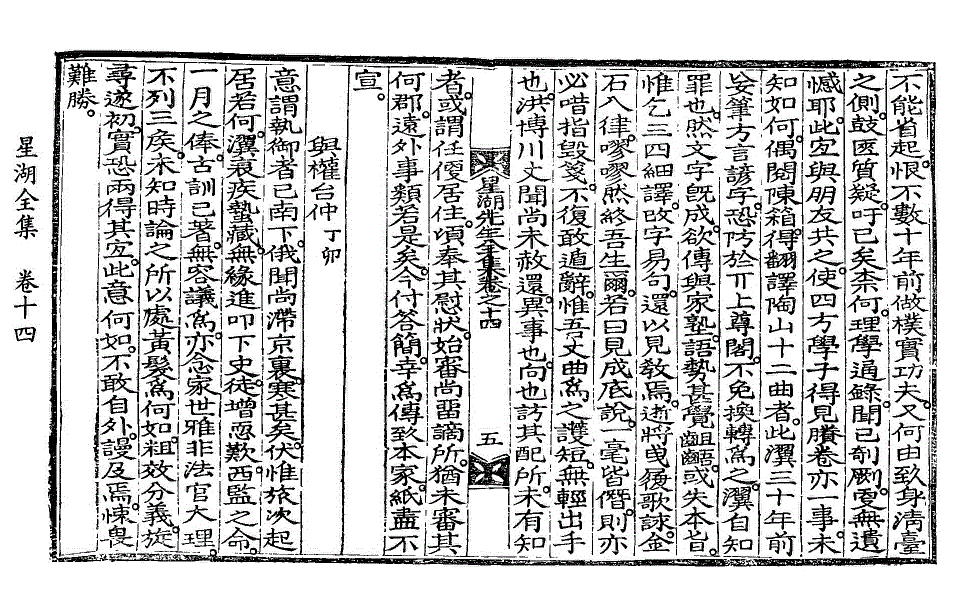 不能省起恨不數十年前做樸實功夫又何由致身淸臺
之側鼓匧質疑吁已矣柰何理學通錄聞已剞劂寧無遺
憾耶此宜與朋友共之使四方學子得見賸卷亦一事未
知如何偶閱陳箱得翻譯陶山十二曲者此瀷三十年前
妄筆方言諺字恐妨於丌上尊閣不免換轉爲之瀷自知
罪也然文字旣成欲傳與家塾語勢甚覺齟齬或失本旨
惟乞三四細譯改字易句還以見敎焉逝將曳履歌詠金
石八律嘐嘐然終吾生爾若曰見成底說一毫皆僭則亦
必咋指毁發不復敢遁辭惟吾丈曲爲之護短無輕出手
也洪博川丈聞尚未赦還異事也向也訪其配所未有知
星湖先生全集卷之十四
五
者或謂任便居住頃奉其慰狀始審尚留謫所猶未審其
何郡遠外事類若是矣今付答簡幸爲傳致本家紙盡不
宣
與權台仲 丁卯
意謂執御者已南下俄聞尚滯京裏寒甚矣伏惟旅次起
居若何瀷衰疾蟄藏無緣進叩下史徒增恧歎西監之命
一月之俸古訓已著無容議爲亦念家世雅非法官大理
不列三矦未知時論之所以處黃髮爲何如粗效分義旋
尋遂初實恐兩得其宜此意何如不敢自外謾及焉悚臾
難勝
星湖全集 卷十四